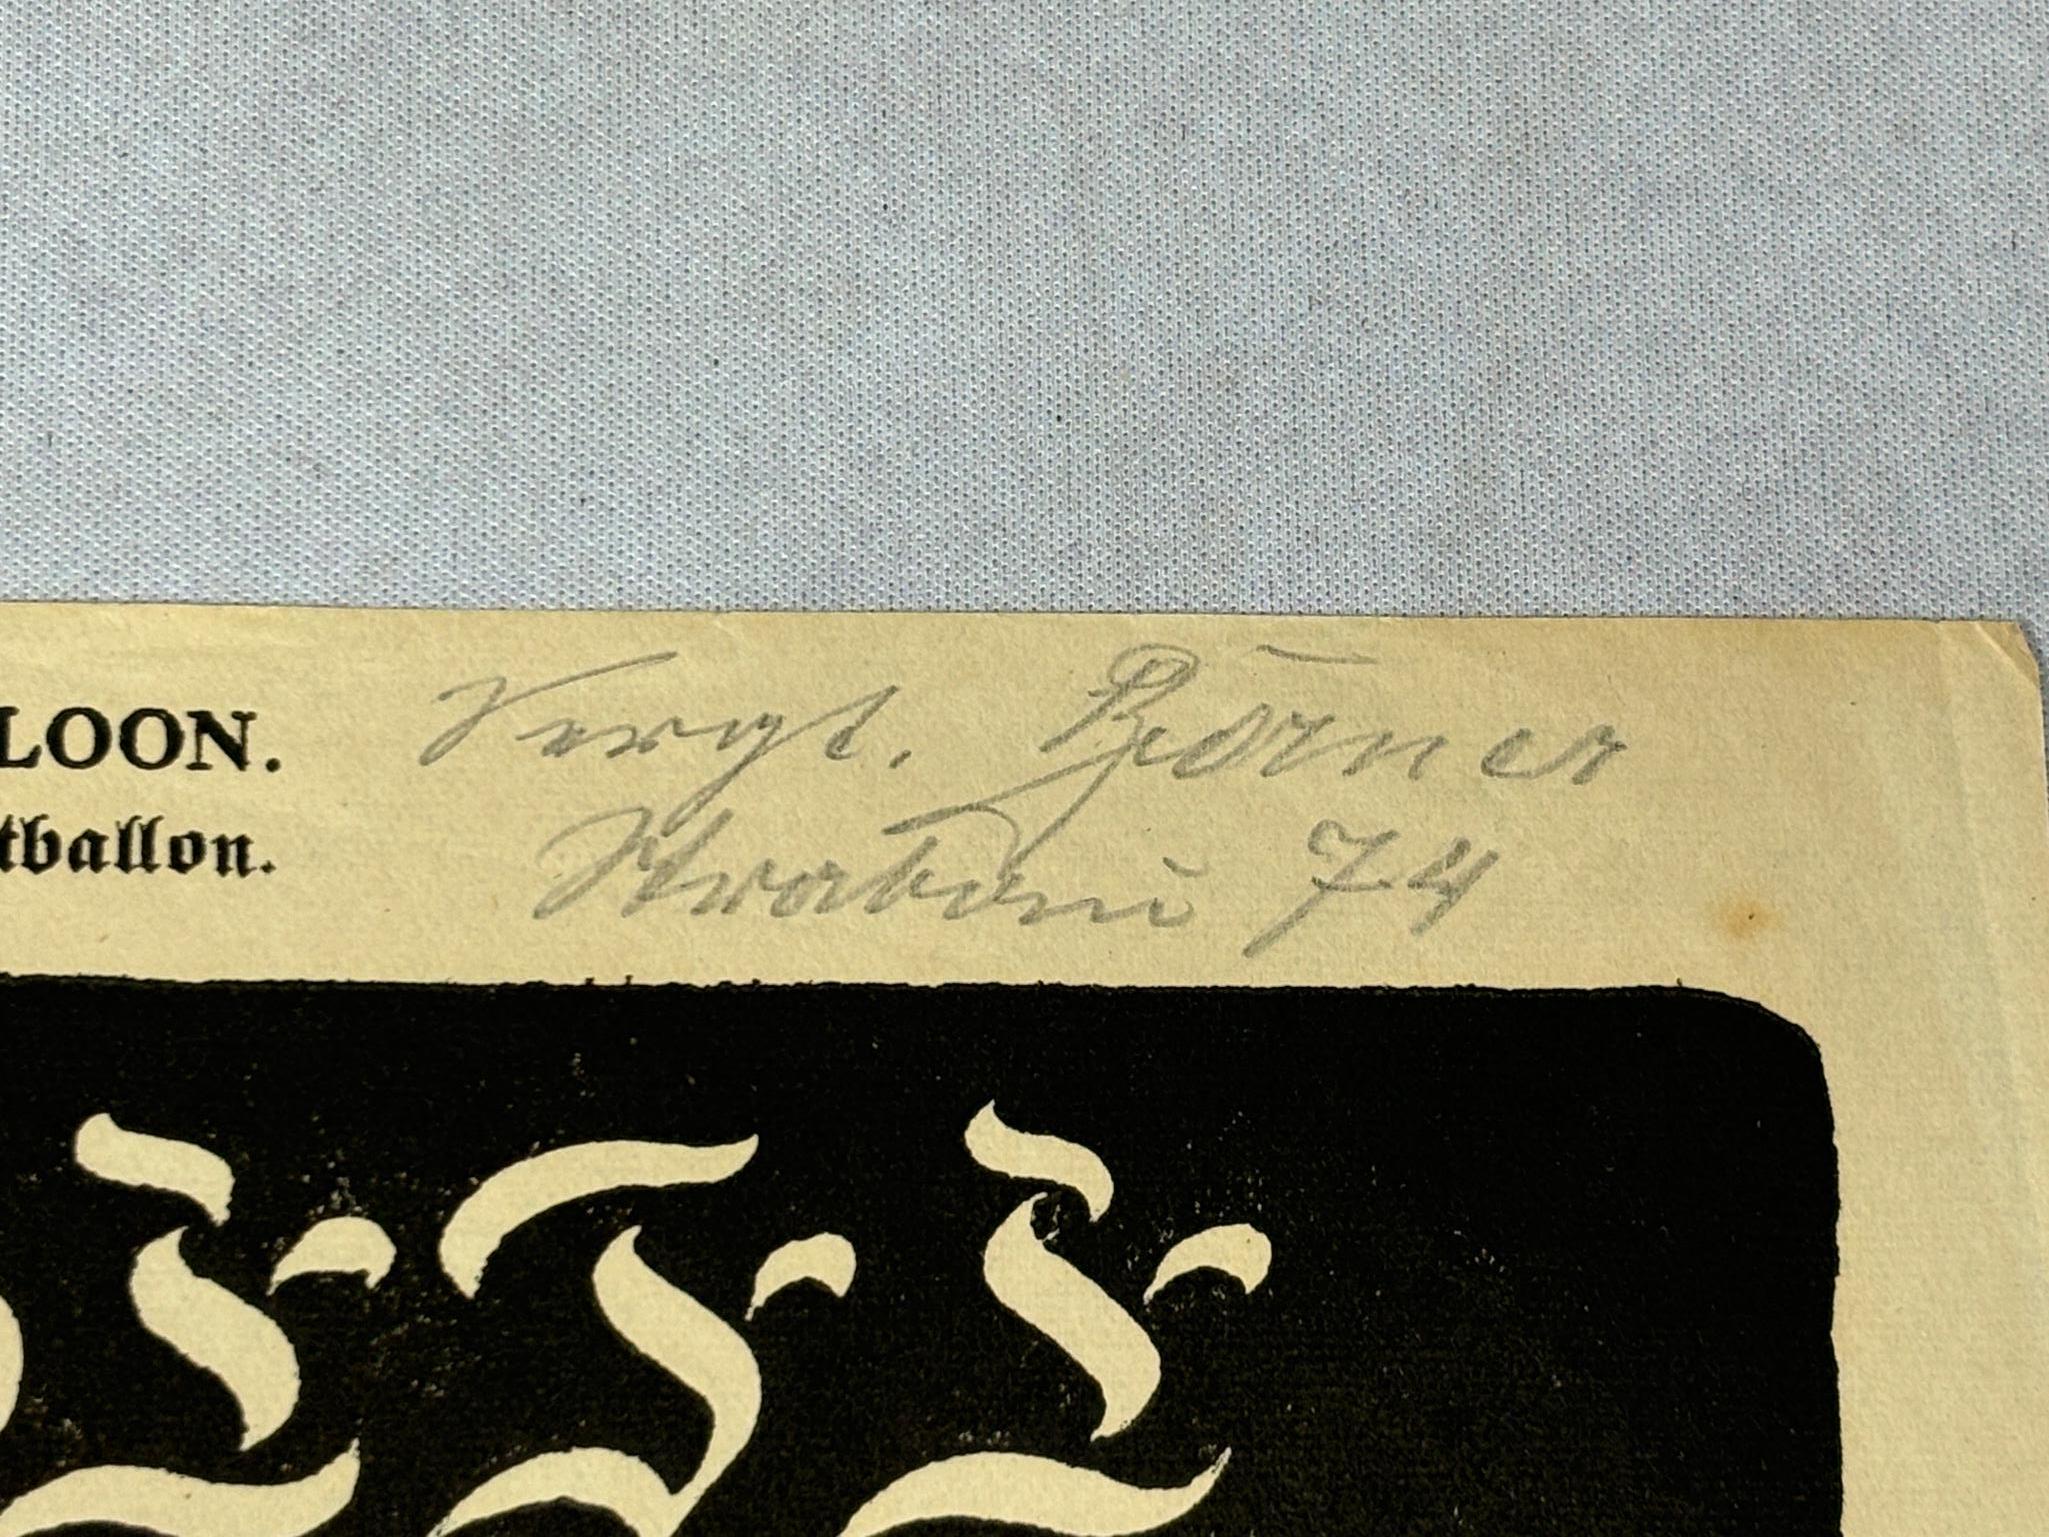 LOON.
tballon.
Vergl. Börner
Strabani 74